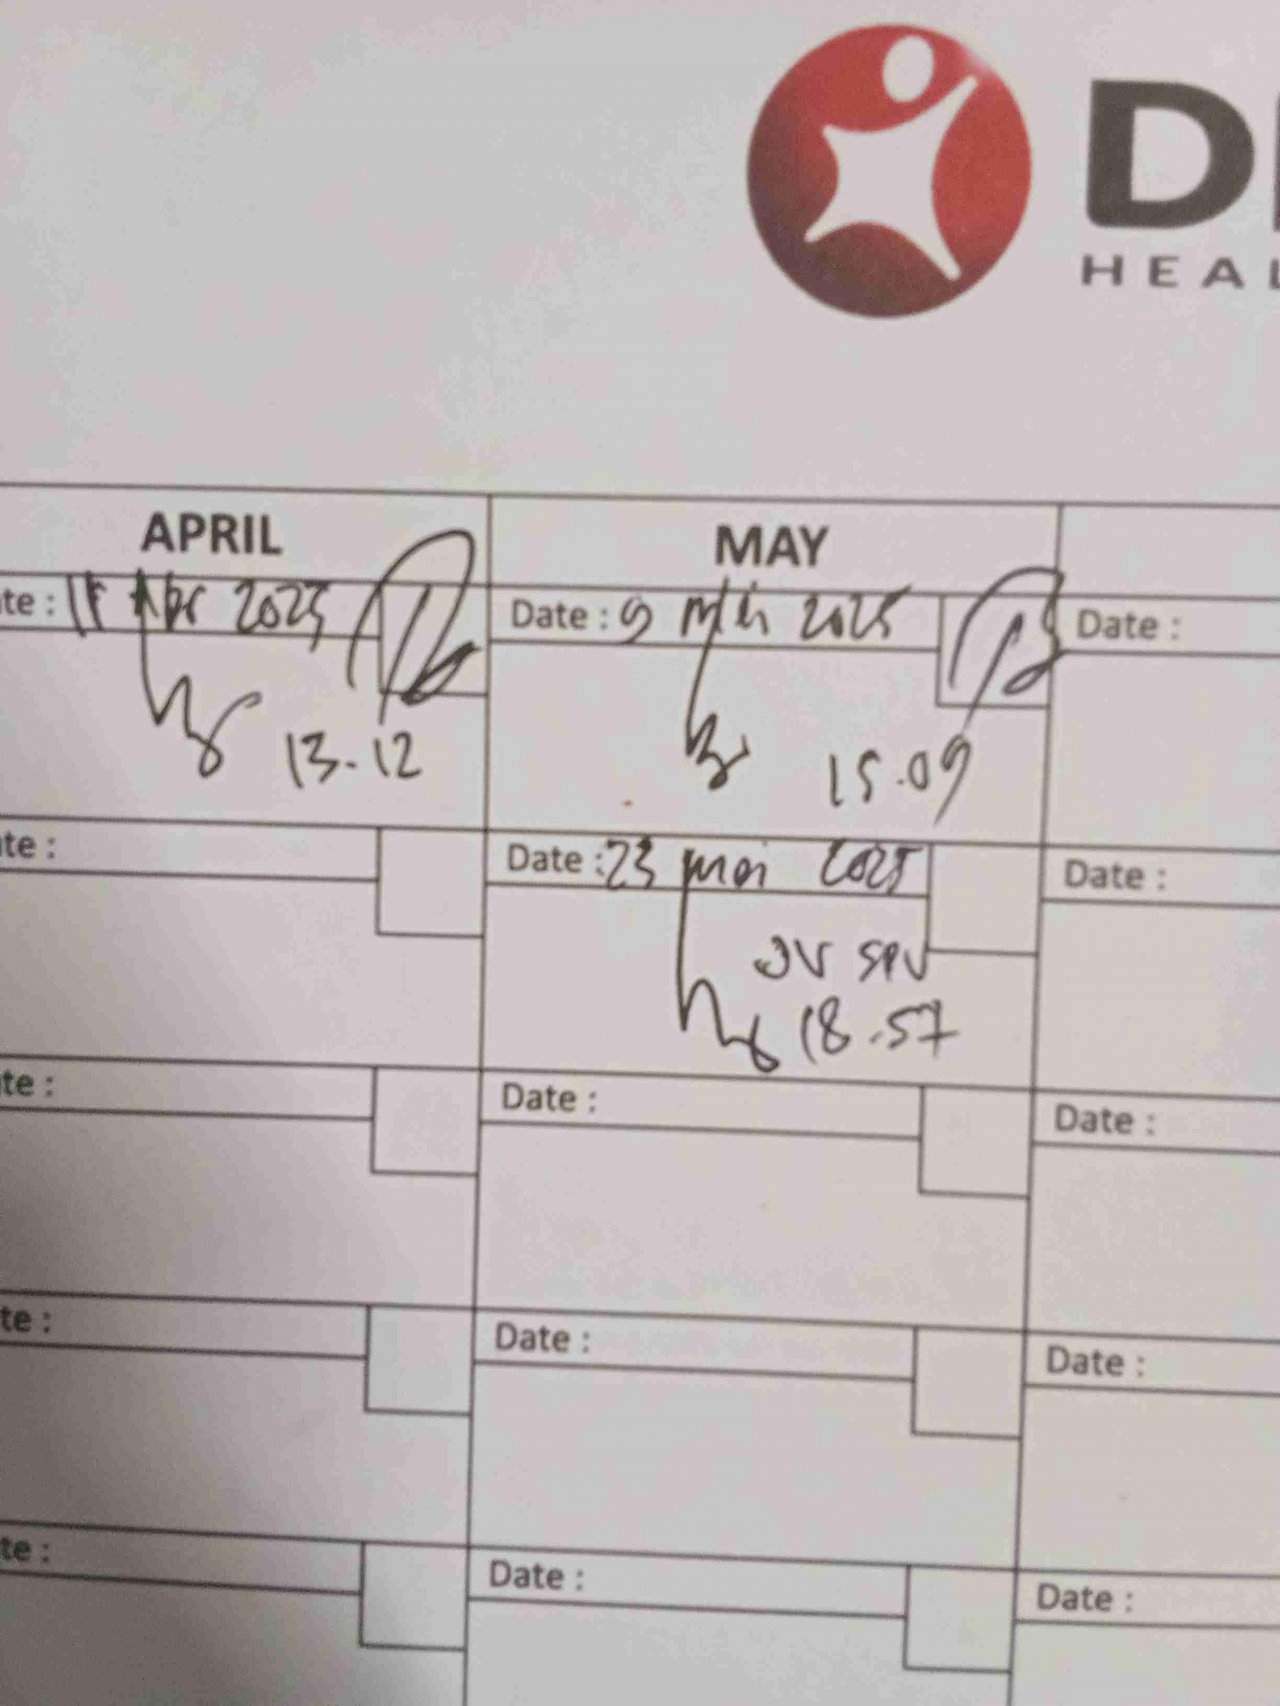 D
HEAL
APRIL
MAY
te : Apr 2025
Date : 9 Mei 2025
Date :
13-12
15.09
te :
Date : 23 mei 2025
Date :
JV SPV
18.57
te :
Date :
Date :
te :
Date :
Date :
te :
Date :
Date :